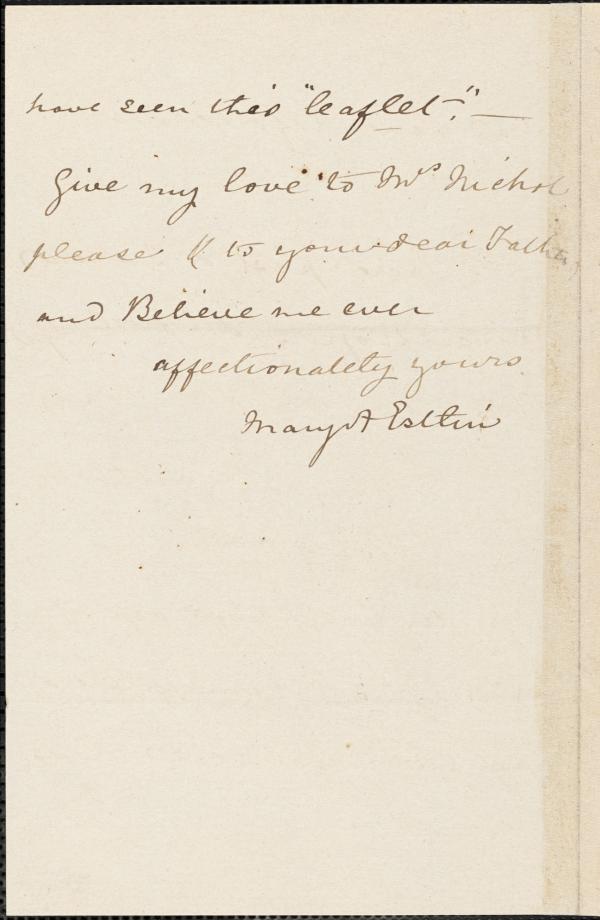 have seen this "leaflet."—
Give my love to Mrs Nichol
please & to your dear Father,
and Believe me ever
affectionately yours
Mary A Estlin